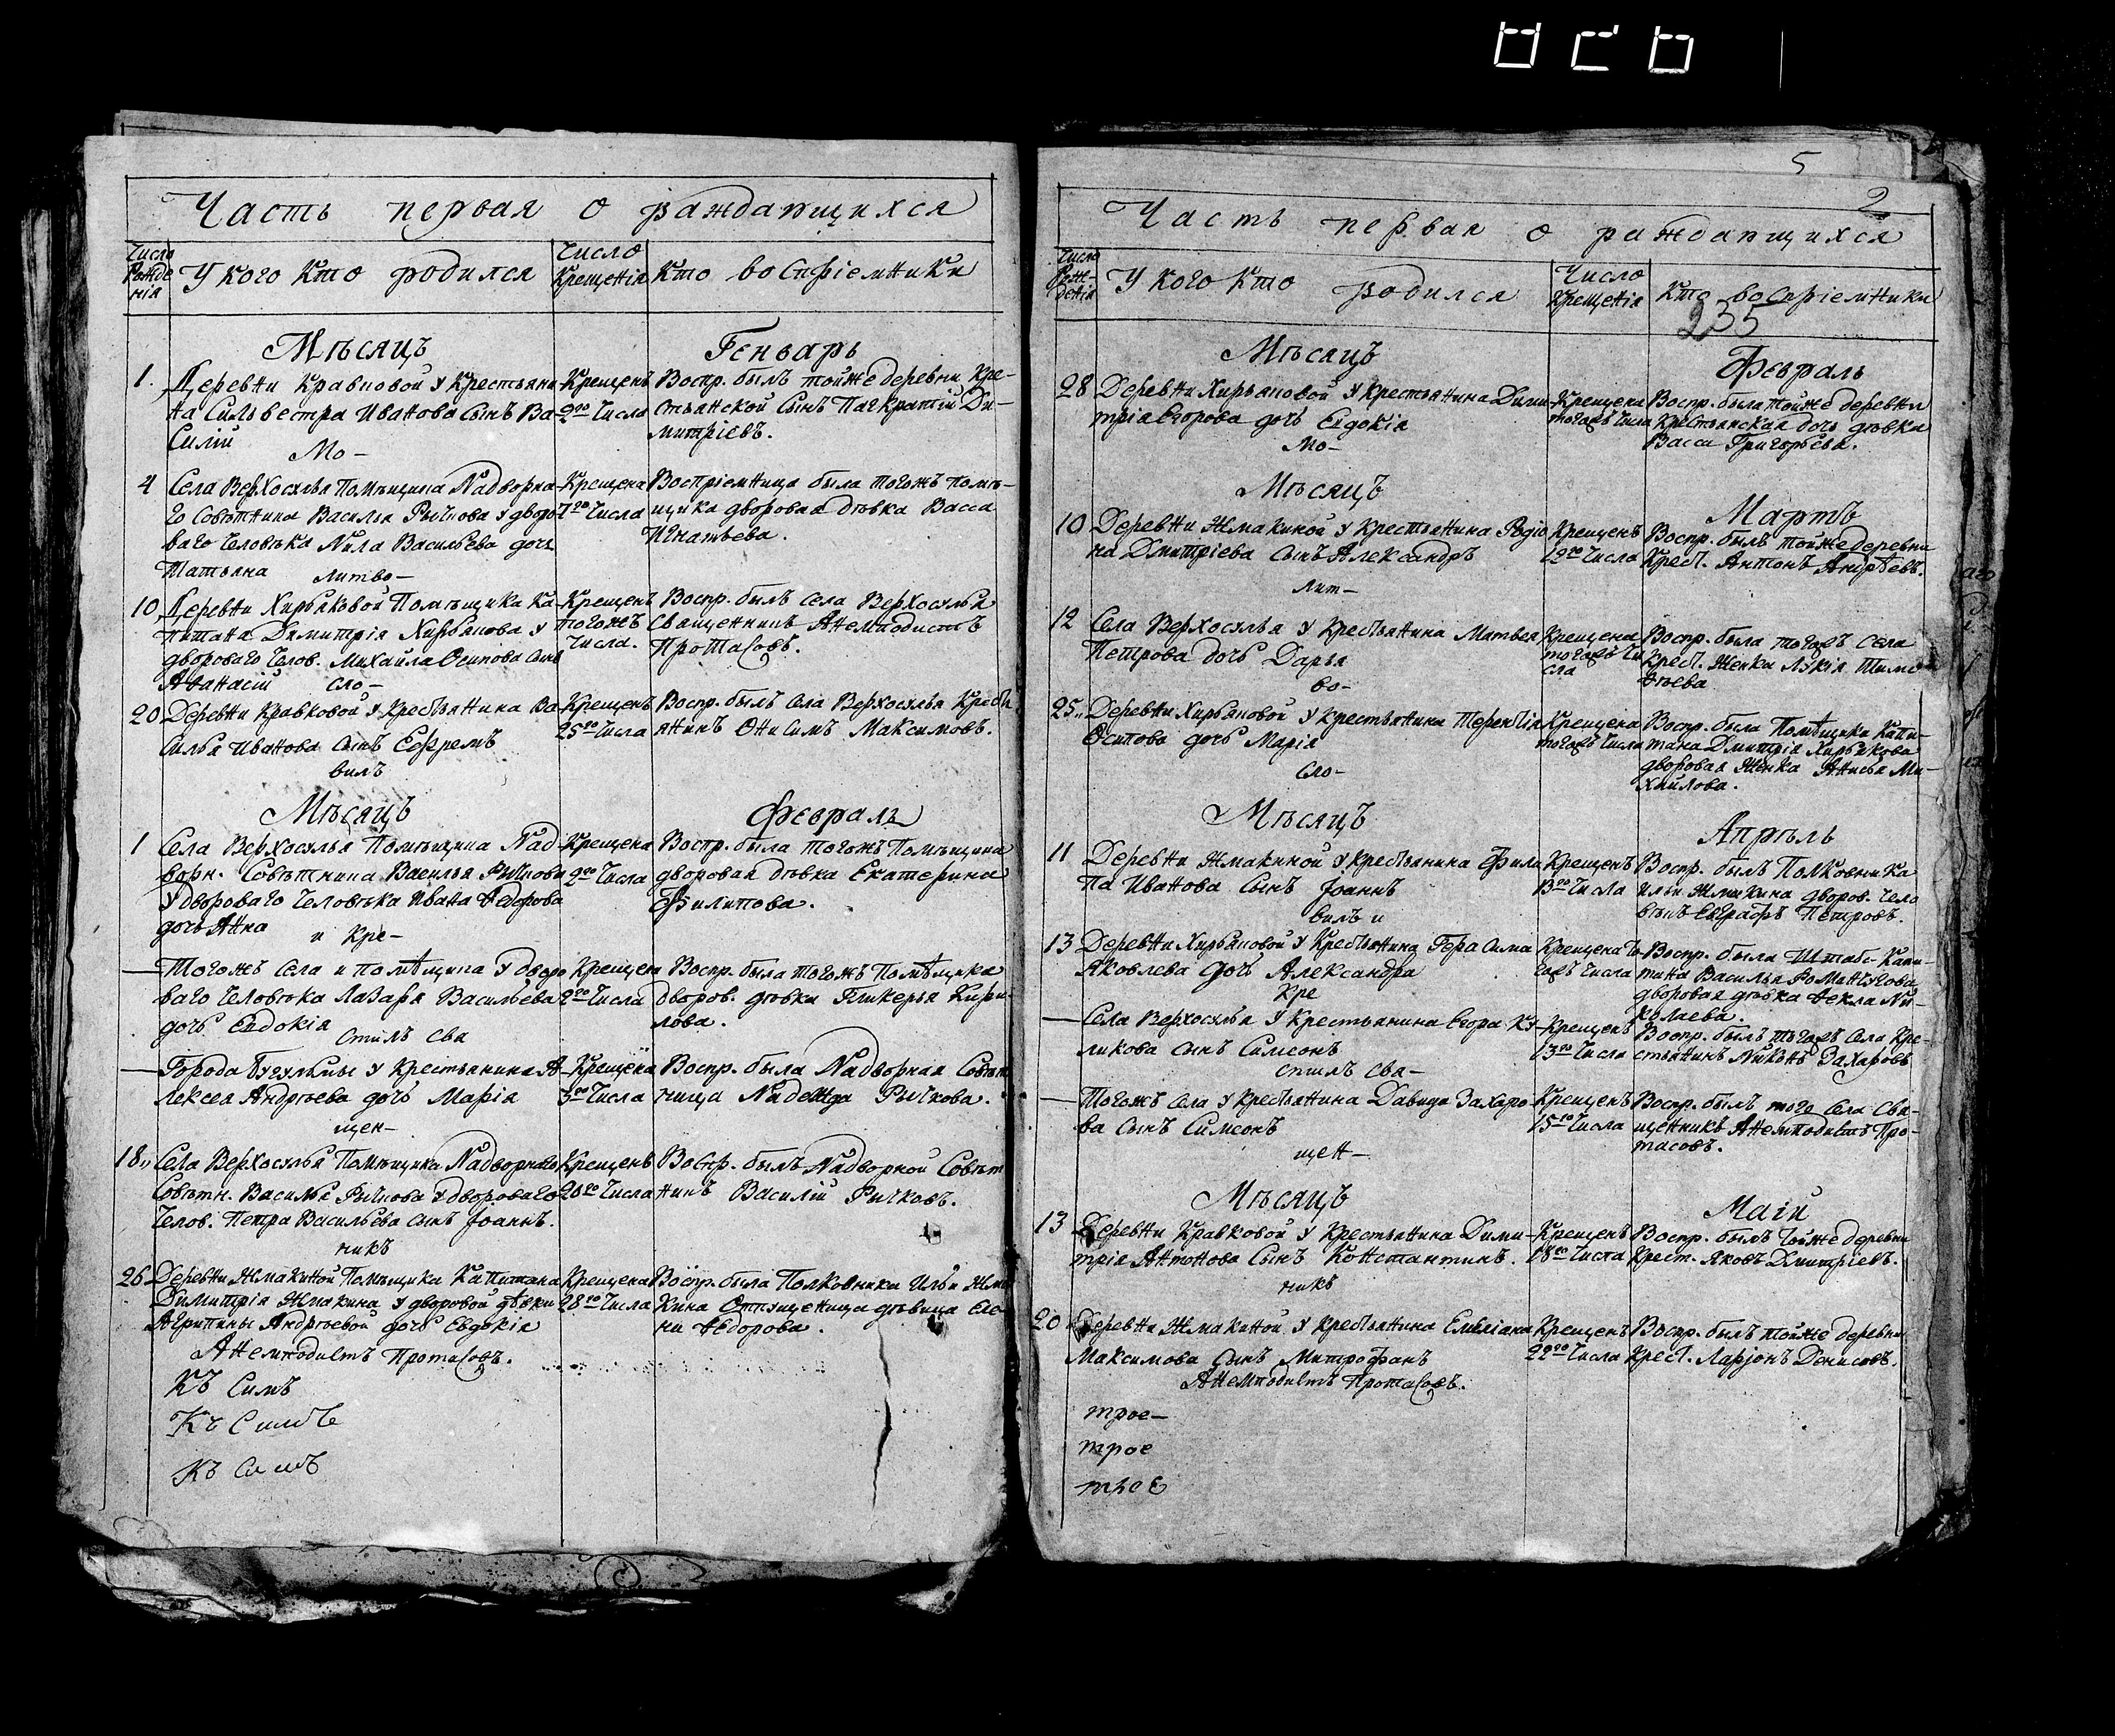 Часть первая о раждающихся
Число Рожденія
У кого кто родился
Число Крещенія
Кто воспріемники
Мѣсяцъ Генварь
1. Деревни Кравковой у Крестьяни-
на Сильвестра Иванова сынъ Ва-
силій
Мо-
Крещенъ
2го числа
Воспр. былъ тойже деревни Кре-
стьянской сынъ Панкратій Ди-
митріевъ.
4 Села Верхосулья Помѣщика Надворна-
го Совѣтника Василья Рычкова у дворо-
ваго человѣка Нила Васильева дочь
Татьяна
литво-
Крещена
7го числа
Воспріемница была тогожъ помѣ-
щика дворовая дѣвка Васса
Игнатьева.
10 Деревни Кирьяковой Помѣщика Ка-
питана Димитрія Кирьякова у
двороваго челов. Михайла Осипова сынъ
Аѳанасій
сло-
Крещенъ
тогожъ
числа.
Воспр. былъ села Верхосулья
священникъ Анемподистъ
Протасовъ.
20 Деревни Кравковой у Крестьянина Ва-
силья Иванова сынъ Ефремъ
вилъ
Крещенъ
25го числа
Воспр. былъ села Верхосулья Кресть
янинъ Онисимъ Максимовъ.
Мѣсяцъ Февраль
1 Села Верхосулья Помѣщика Над-
ворн. Совѣтника Василья Рычкова
у двороваго человѣка Ивана Ѳедорова
дочь Анна
и кре-
Крещена
2го числа
Воспр. была тогожъ Помѣщика
дворовая дѣвка Екатерина
Филипова.
— Тогожъ села и помѣщика у дворо
ваго человѣка Лазаря Васильева
дочь Евдокія
стилъ свя
Крещена
2го числа
Воспр. была тогожъ Помѣщика
дворов. дѣвка Гликерья Кири-
лова.
— Города Бугульмы у Крестьянина А-
лексея Андрѣева дочь Марія
щен-
Крещена
3го числа
Воспр. была Надворная Совѣт
ница Надежда Рычкова.
18 Села Верхосулья Помѣщика Надворнаго
Совѣтн. Василья Рычкова у двороваго
челов. Петра Васильева сынъ Іоаннъ.
никъ
Крещенъ
20го числа
Воспр. былъ Надворной Совѣт
никъ Василій Рычковъ.
26 Деревни Жмакиной Помѣщика Капитана
Димитрія Жмакина у дворовой дѣвки
Агрипины Андрѣевой дочь Евдокія
Крещена
28го числа
Воспр. была Полковника Ильи Жма
кина Отпущенница дѣвица Еле-
на Ѳедорова.
Анемподистъ Протасовъ.
Къ Симъ
Къ Симъ
Къ Симъ
5
2
Часть первая о раждающихся
Число Рожденія
У кого кто родился
Число Крещенія
Кто воспріемники
235
Мѣсяцъ Февраль
28 Деревни Кирьяковой у Крестьянина Дими-
трія Егорова дочь Евдокія
Мо-
Крещена
тогожъ числа
Воспр. была тойже деревни
Крестьянская дочь дѣвка
Васса Григорьева.
Мѣсяцъ Мартъ
10 Деревни Жмакиной у Крестьянина Родіо
на Дмитріева сынъ Александръ
лит-
Крещенъ
12го числа
Воспр. былъ тойже деревни
Крест. Антонъ Андрѣевъ.
12 Села Верхосулья у Крестьянина Матвея
Петрова дочь Дарья
во-
Крещена
тогожъ чи
сла
Воспр. была тогожъ села
Крест. Женка Лукія Тимо-
ѳѣева
25 Деревни Кирьяковой у Крестьянина Терентія
Осипова дочь Марія
сло-
Крещена
тогожъ числа
Воспр. была Помѣщика Капи-
тана Дмитрія Кирьякова
дворовая Женка Анисья Ми-
хайлова.
Мѣсяцъ Апрѣль
11 Деревни Жмакиной у Крестьянина Фили
па Иванова сынъ Іоаннъ
вилъ и
Крещенъ
13го числа
Воспр. былъ Полковника
Ильи Жмакина дворов. чело
вѣкъ Евграфъ Петровъ.
13 Деревни Кирьяковой у Крестьянина Герасима
Яковлева дочь Александра
Кре
Крещена то-
гожъ числа
Воспр. была Штабс-Капи-
тана Василья Романчукова
дворовая дѣвка Ѳекла Ни-
колаева.
— Села Верхосулья у Крестьянина Егора Ку-
ликова сынъ Симеонъ
стилъ свя-
Крещенъ
13го числа
Воспр. былъ тогожъ села Кре-
стьянинъ Никонъ Захаровъ
— Тогожъ села у Крестьянина Давида Захаро-
ва сынъ Симеонъ
щен-
Крещенъ
15го числа
Воспр. былъ того села Свя-
щенникъ Анемподистъ Про-
тасовъ.
Мѣсяцъ Маій
13 Деревни Кравковой у Крестьянина Дими-
трія Антонова сынъ Константинъ.
никъ
Крещенъ
18го числа
Воспр. былъ тойже деревни
Крест. Яковъ Дмитріевъ.
20 Деревни Жмакиной у Крестьянина Емеліана
Максимова сынъ Митрофанъ
Крещенъ
22го числа
Воспр. былъ тойже деревни
Крест. Ларіонъ Денисовъ.
Анемподистъ Протасовъ.
трое-
трое
трое